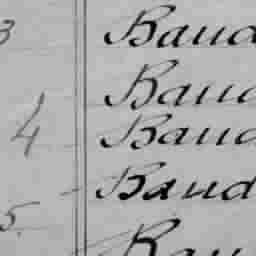 3 Baud
Baud
4 Baud
Baud
5. Bau